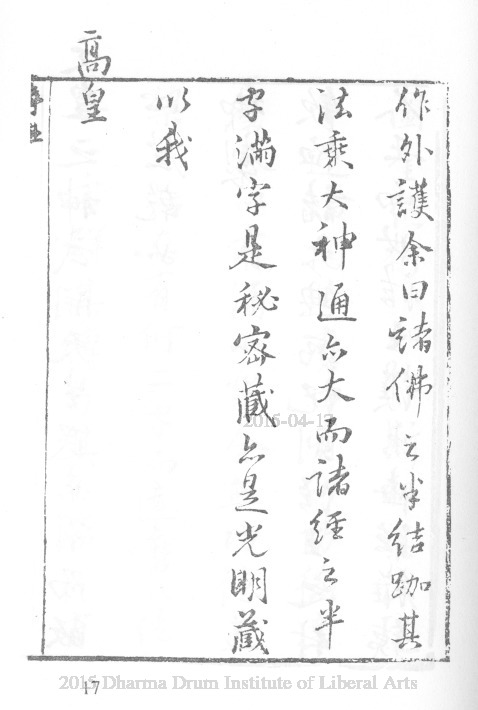 作外護余曰諸佛之半結跏其
法乘大神通亦大而諸經之半
字滿字是秘密藏亦是光明藏
以我
高皇
2015-04-13
17
2015 Dharma Drum Institute of Liberal Arts